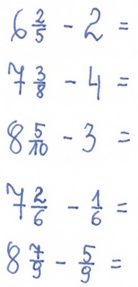 6 2/5 - 2 =
7 3/8 - 4 =
8 5/10 - 3 =
7 2/6 - 1/6 =
8 7/9 - 5/9 =